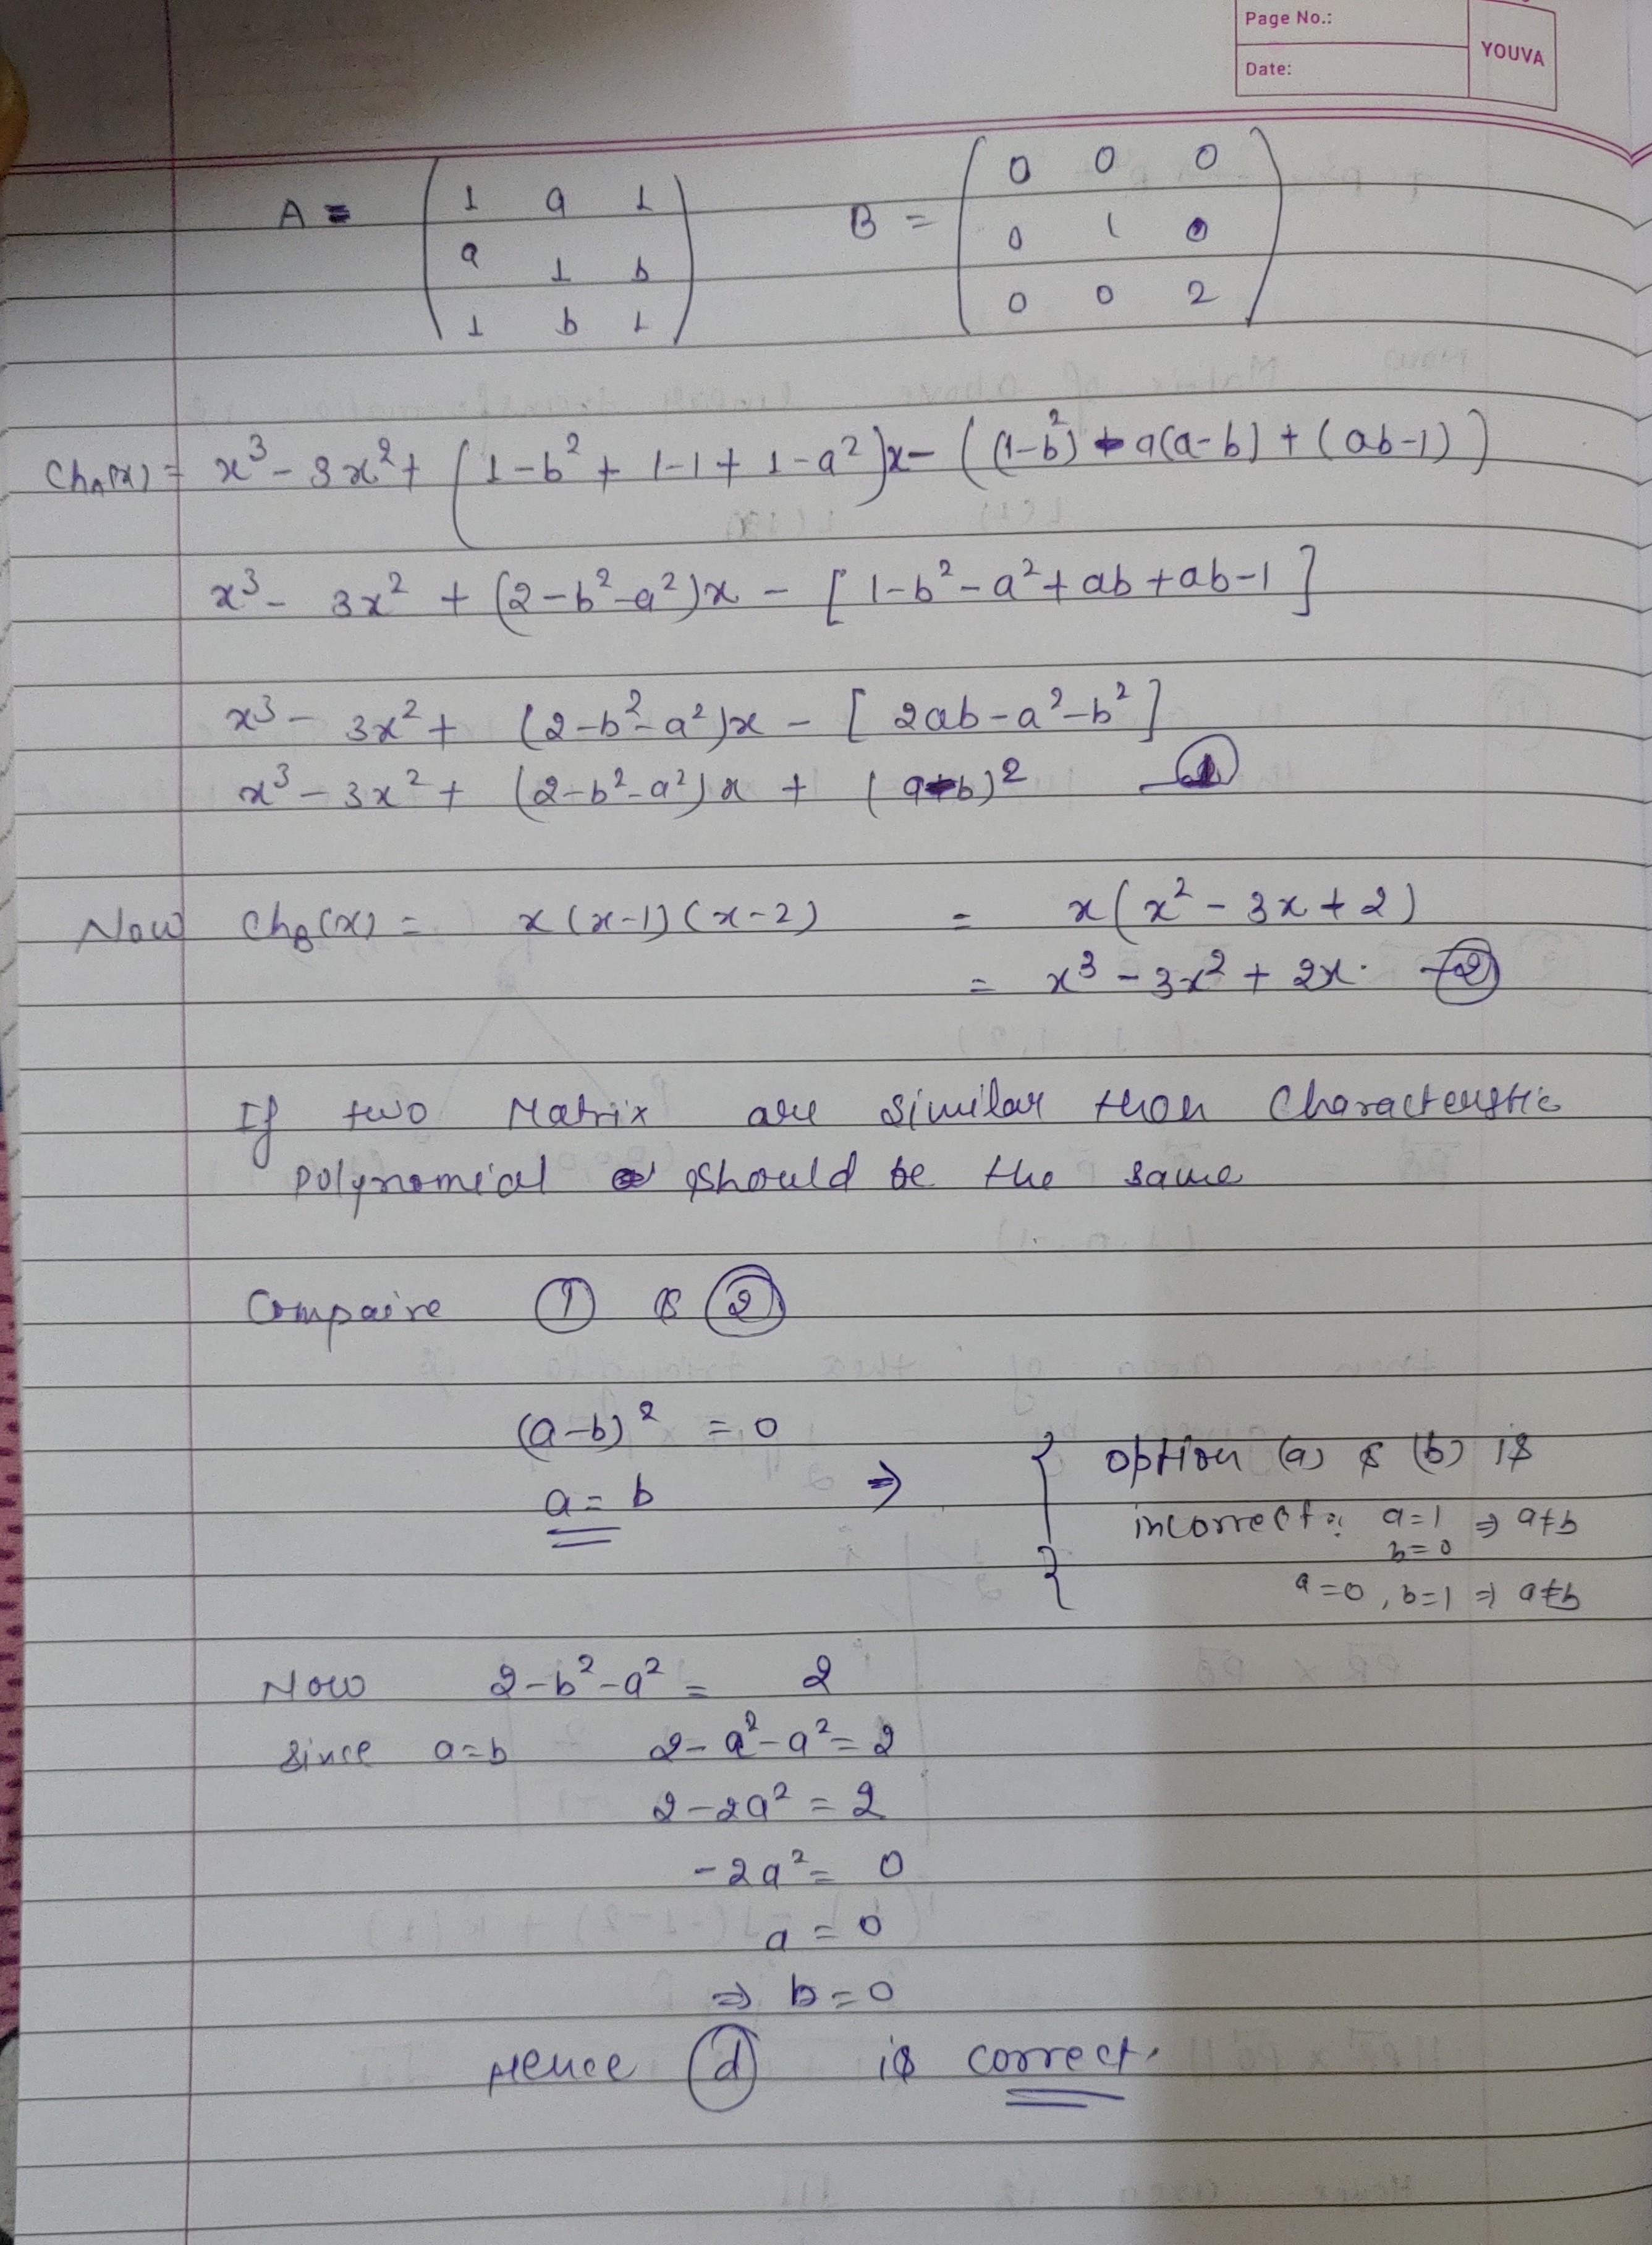 Page No.:
YOUVA
Date:
A = ( 1 a 1
a 1 b
1 b 1 )
B = ( 0 0 0
0 1 0
0 0 2 )
ChA(x) = x³ - 3x² + (1-b² + 1-1 + 1-a²)x - ((1-b²) - a(a-b) + (ab-1))
x³ - 3x² + (2-b²-a²)x - [1-b²-a²+ab+ab-1]
x³ - 3x² + (2-b²-a²)x - [2ab-a²-b²]
x³ - 3x² + (2-b²-a²)x + (a-b)² — ①
Now ChB(x) = x(x-1)(x-2) = x(x² - 3x + 2)
= x³ - 3x² + 2x. — ②
If two Matrix are similar than Characterstic
polynomial should be the same
Compaire ① & ②
(a-b)² = 0
a = b ⇒ { option (a) & (b) is
incorrect ∵ a=1 ⇒ a≠b
b=0
a=0, b=1 ⇒ a≠b
Now 2-b²-a² = 2
since a=b 2-a²-a² = 2
2-2a² = 2
-2a² = 0
a = 0
⇒ b = 0
Hence (d) is correct.